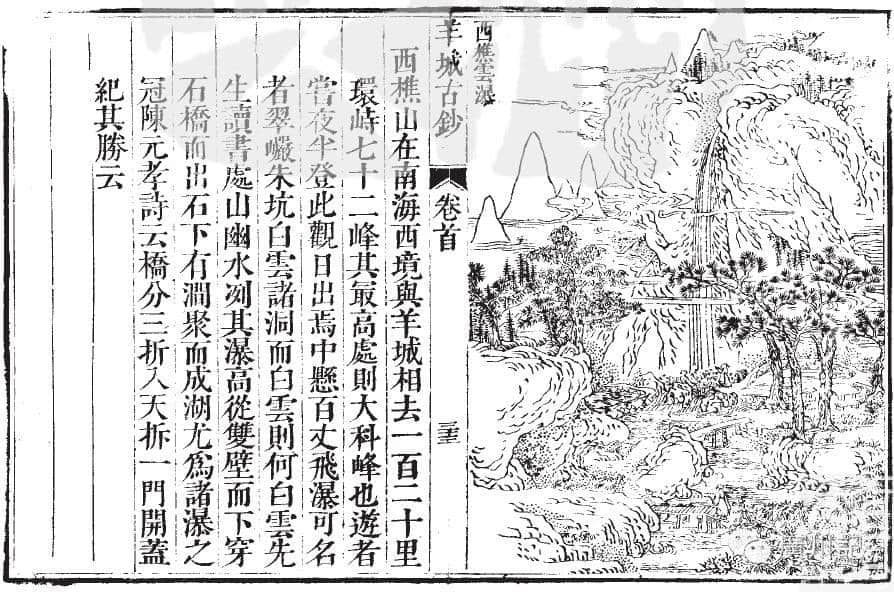 西樵雲瀑
羊城古鈔
卷首
西樵山在南海西境與羊城相去一百二十里
環峙七十二峰其最高處則大科峰也遊者
當夜半登此觀日出焉中懸百丈飛瀑可名
者翠巖朱坑白雲諸洞而白雲則何白雲先
生讀書處山幽水冽其瀑高從雙壁而下穿
石橋而出石下有澗聚而成湖尤爲諸瀑之
冠陳元孝詩云橋分三折入天拆一門開蓋
紀其勝云